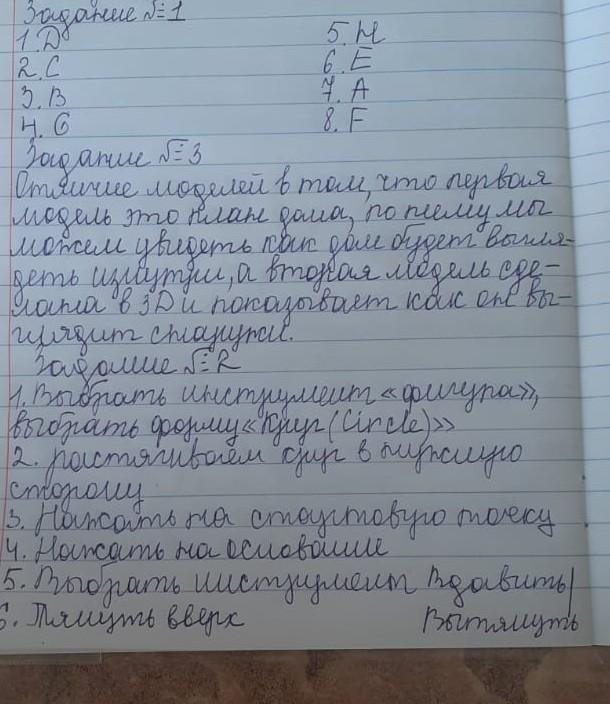 Задание №1
1. D
5. H
2. C
6. E
3. B
7. A
4. G
8. F
Задание №3
Отличие моделей в том, что первая
модель это план дома, по нему мы
можем увидеть как дом будет выгля-
деть изнутри, а вторая модель сде-
лана в 3D и показывает как он вы-
глядит снаружи.
Задание №2
1. Выбрать инструмент «фигура»,
выбрать форму «Круг (Circle)»
2. растягиваем круг в нужную
сторону
3. Нажать на стартовую точку
4. Нажать на основание
5. Выбрать инструмент Вдавить/
Вытянуть
6. Тянуть вверх